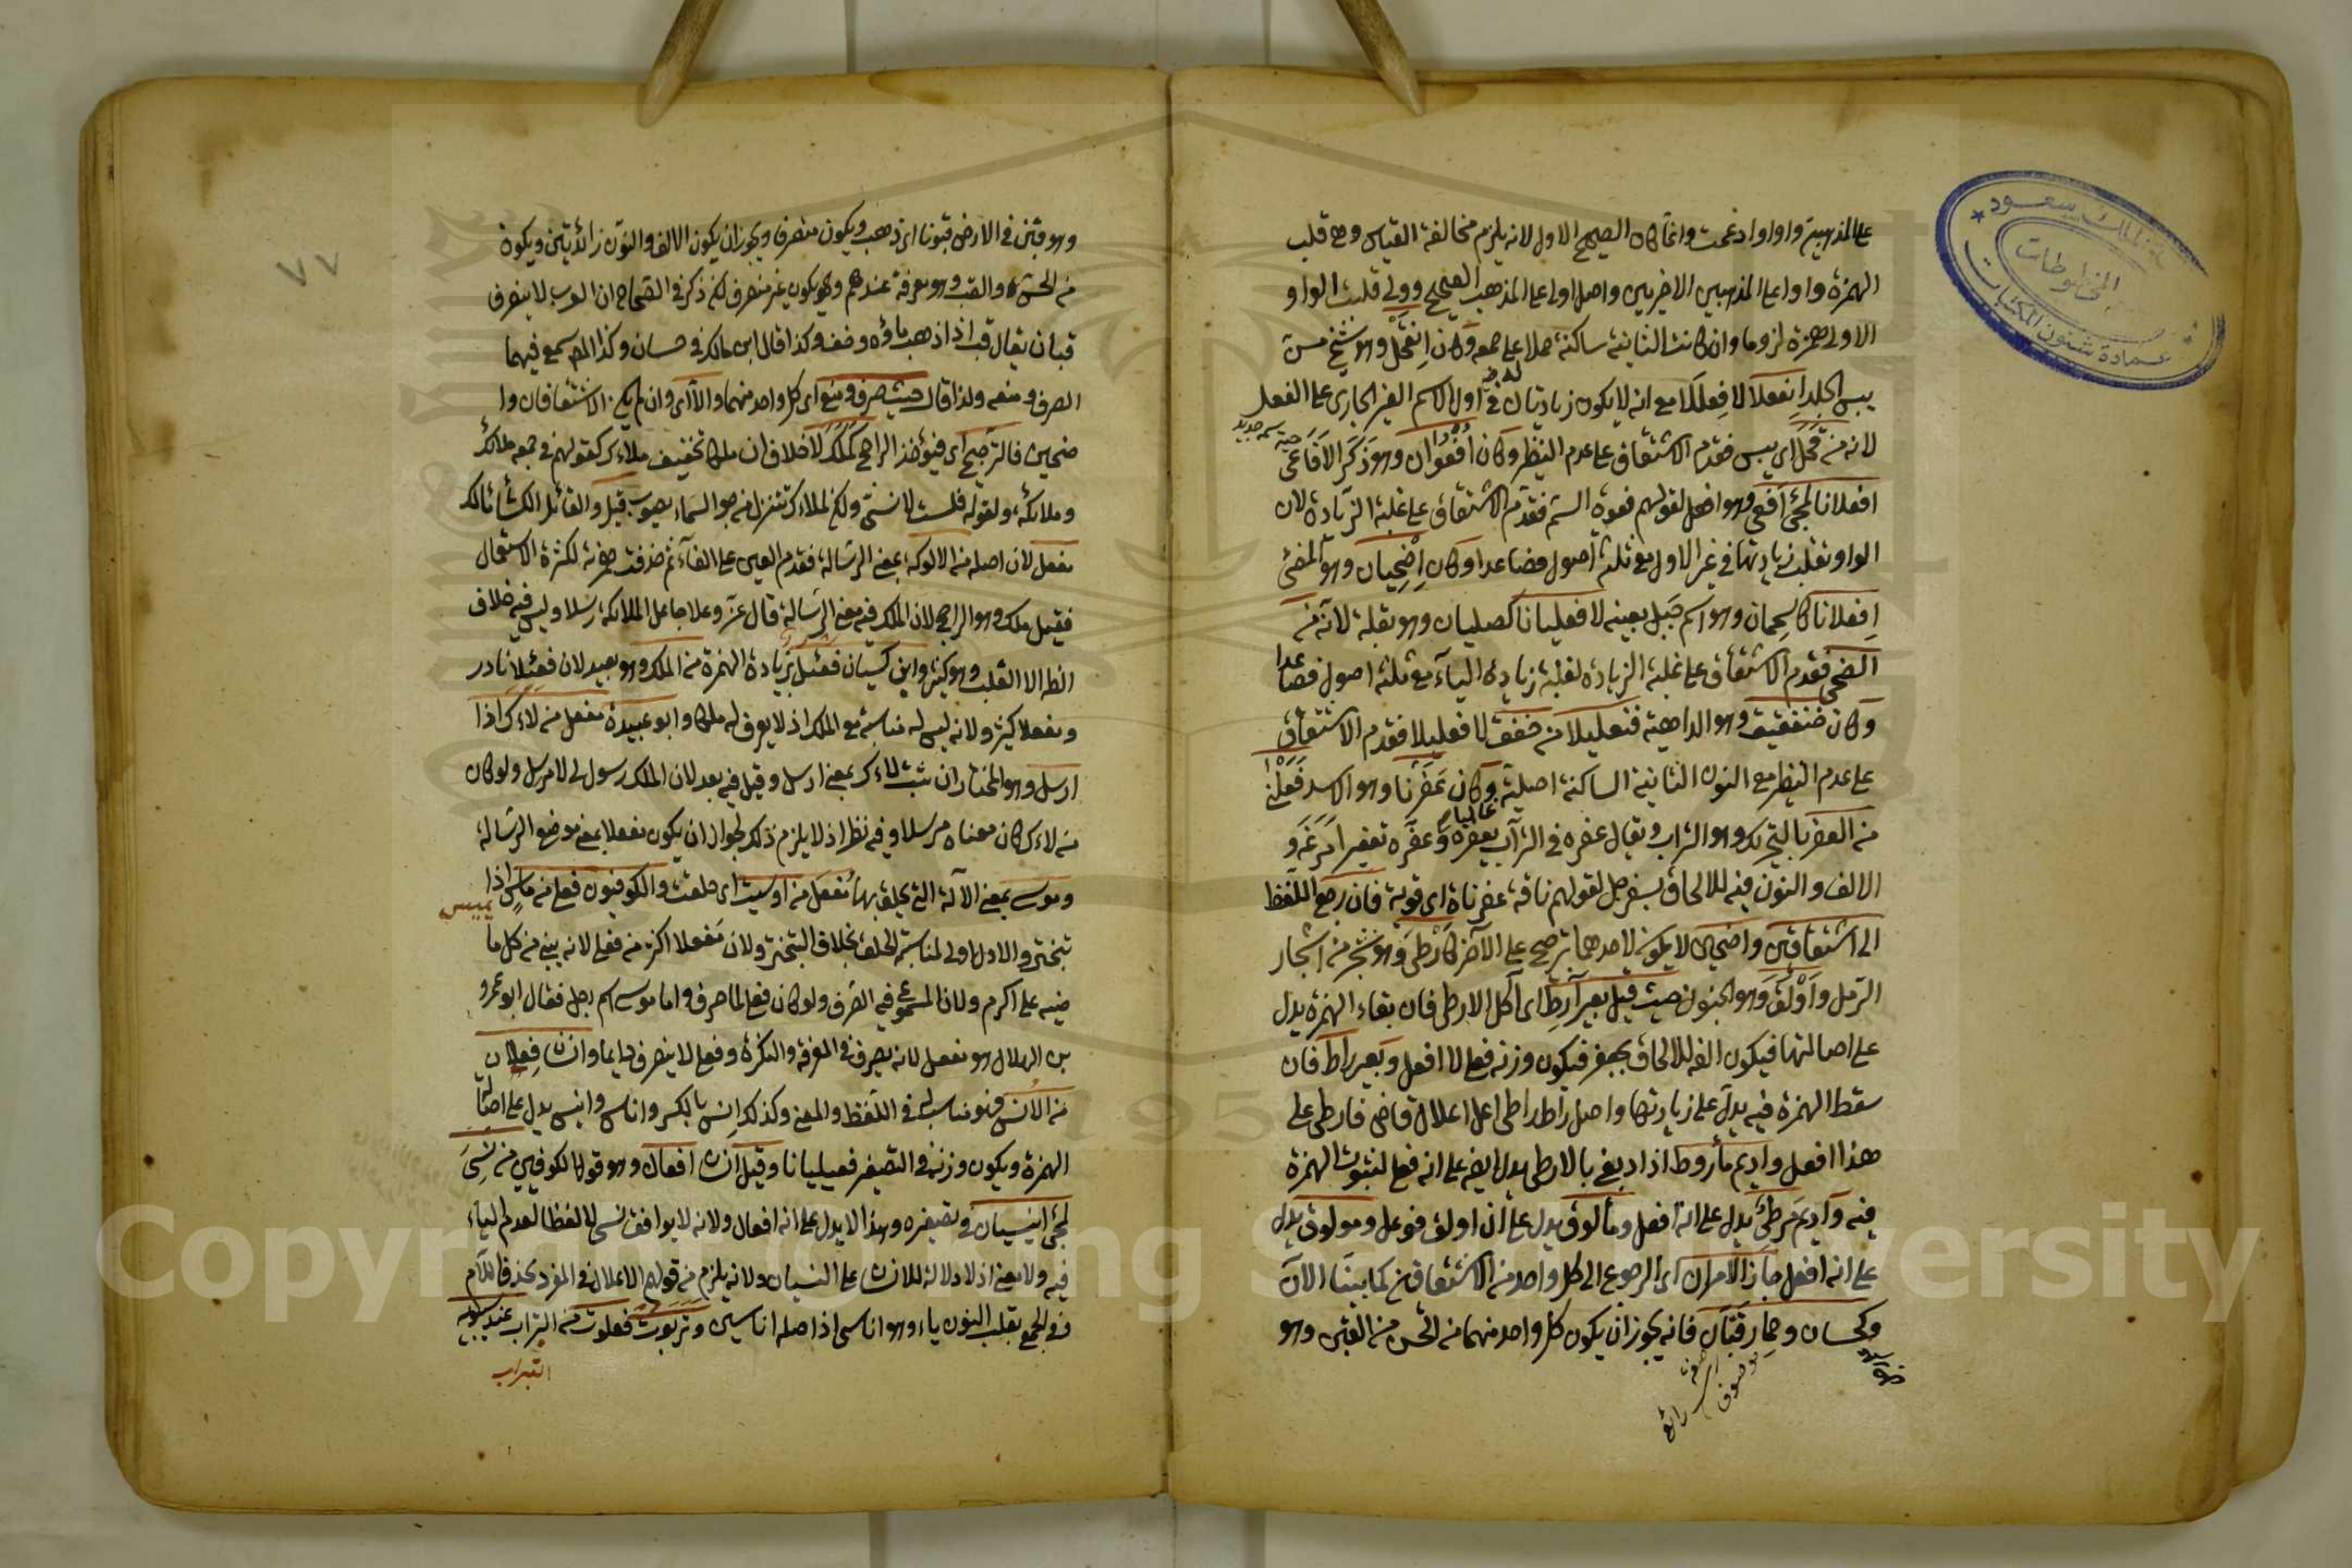 على المذهبين واوا وادغمت وانما كان الصحيح الاول لانه يلزم مخالفة القياس وهو قلب
الهمزة واوا على المذهبين الاخيرين واصل اولى على المذهب الصحيح وولى قلبت الواو
الاولى همزة لزوما وان كانت الثانية ساكنة حملا على جمعه وكان انقحل وهو شيخ مسن
يبس الجلد انفعلا لا فعللا مع انه لا يكون زيادتان في اول الاسم الغير الجارى على الفعل
لانه من قحل اى يبس فقدم الاشتقاق على عدم النظير وكان افعوان وهو ذكر الافاعى
افعلانا لمجئ افعى وهو افعل لقولهم فعوة السم فقدم الاشتقاق على غلبة الزيادة لان
الواو تغلب زيادتها في غير الاول مع ثلثة اصول فصاعدا وكان اضحيان وهو المضئ
افعلانا كاسحمان وهو اسم جبل بعينه لا فعليانا كصليان وهو بقلة لانه من
الضحى فقدم الاشتقاق على غلبة الزيادة لغلبة زيادة الياء مع ثلثة اصول فصاعدا
وكان خنفقيق وهو الداهية فنعليلا من خفق لا فعلليلا فقدم الاشتقاق
على عدم النظير مع النون الثانية الساكنة اصلية وكان عفرنا وهو الاسد فعلنى
من العفر بالتحريك وهو التراب ويقال عفره في التراب يعفره وعفره تعفيرا مرغه و
الالف والنون فيه للالحاق بسفرجل لقولهم ناقة عفرناة اى قوية فان رجع اللفظ
الى اشتقاقين واضحين لا يكون لاحدهما ترجيح على الآخر كارطى وهو شجر من اشجار
الرمل واولق وهو الجنون حيث قيل بعير آرط اى آكل الارطى فان بقاء الهمزة يدل
على اصالتها فيكون الفه للالحاق بجعفر فيكون وزنه فعلى لا افعل وبعير راط فان
سقط الهمزة فيه يدل على زيادتها واصل راط راطى اعل اعلال قاض فارطى على
هذا افعل واديم مأروط اذا دبغ بالارطى يدل ايضا على انه فعلى لثبوت الهمزة
فيه واديم مرطى يدل على انه افعل ومألوق يدل على ان اولق فوعل ومولوق يدل
على انه افعل جاز الامران اى الرجوع الى كل واحد من الاشتقاقين كما بينا الآن
وكحسان وحمار قبان فانه يجوز ان يكون كل واحد منهما من الحسن من القبن وهو
وهو قبن في الارض قبونا اى ذهب ويكون منصرفا ويجوز ان يكون الالف والنون زائدتين ويكون
من الحس والقب وهو معرفة عندهم ويكون غير منصرف لكن ذكر في الصحاح ان العرب لا يصرف
قبان يقال قب اذا ذهب ماؤه وضف وكذا قال ابن مالك في حسان وكذا المسموع فيهما
الصرف ومنعه ولذا قال حيث صرف ومنع اى كل واحد منهما والا اى وان لم يكن الاشتقاقان وا
ضحين فالترجيح اى فيؤخذ الراجح كملك لاخلاف ان ملكا تخفيف ملاءك كقولهم في جمعه ملائك
وملائكة ولقوله فلست لانسى ولكن لملاءك تنزل من جو السماء يصوب قيل والقائل الكسائى مالك
مفعل لان اصله من الالوكة بمعنى الرسالة فقدم العين على الفاء ثم حذفت همزته لكثرة الاستعمال
فقيل ملك وهو الراجح لان الملك فيه معنى الرسالة قال عز وعلا جاعل الملائكة رسلا وليس فيه خلاف
الظ الا القلب وهو كثير وابن كيسان فعئل بزيادة الهمزة من الملك وهو بعيد لان فعئلا نادر
ومفعلا كثير ولانه ليس له مناسبة مع الملك اذ لا يعرف له ملكا وابو عبيدة مفعل من لاءك اذا
ارسل وهو المختار ان ثبت لاءك بمعنى ارسل وقيل فيه بعد لان الملك رسول لا مرسل ولو كان
من لاءك كان معناه مرسلا وفيه نظر اذ لا يلزم ذلك لجواز ان يكون مفعلا بمعنى موضع الرسالة
وموسى بمعنى الآلة التى يحلق بها مفعل من اوسيت اى حلقت والكوفيون فعلى من ماس اذا
يميس
تبختر والاول اولى لمناسبة الحلق بخلاف التبختر ولان مفعلا اكثر من فعلى لانه يبنى من كل ما
ضيه على اكرم ولان المسموع فيه الصرف ولو كان فعلى لما صرف واما موسى اسم رجل فقال ابو عمرو
بن العلاء هو مفعل لانه يصرف في المعرفة والنكرة وفعلى لا ينصرف دايما وانسان فعلان
من الانس وهو مناسب له في اللفظ والمعنى وكذلك انس بالكسر واناس وانيس يدل على اصالة
الهمزة ويكون وزنه في التصغير فعيليانا وقيل انسان افعان وهو قول الكوفيين من نسى
لمجئ انيسيان في تصغيره وهذا لا يدل على انه افعان ولانه لا يوافق نسى لا لفظا لعدم الياء
فيه ولا معنى اذ لا دلالة للانسان على النسيان ولانه يلزم من قولهم الاعلال في المفرد بحذف اللام
وفي الجمع بقلب النون ياء وهو اناسى اذ اصله اناسين وتربوت فعلوت من التراب عند سيبويه
التراب
٧٧
المخطوطات
عمادة شئون المكتبات
Copyright © King Saud University
1957